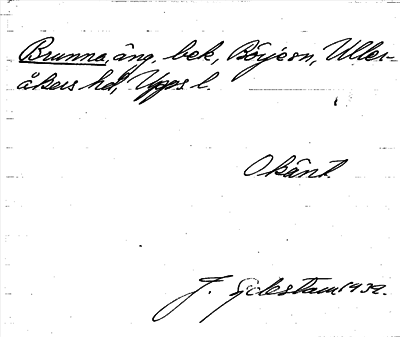 Brunna, äng, bek, Börje sn, Uller-
åkers hd, Upps l.
Okänt.
J. Sjöstam 1932.